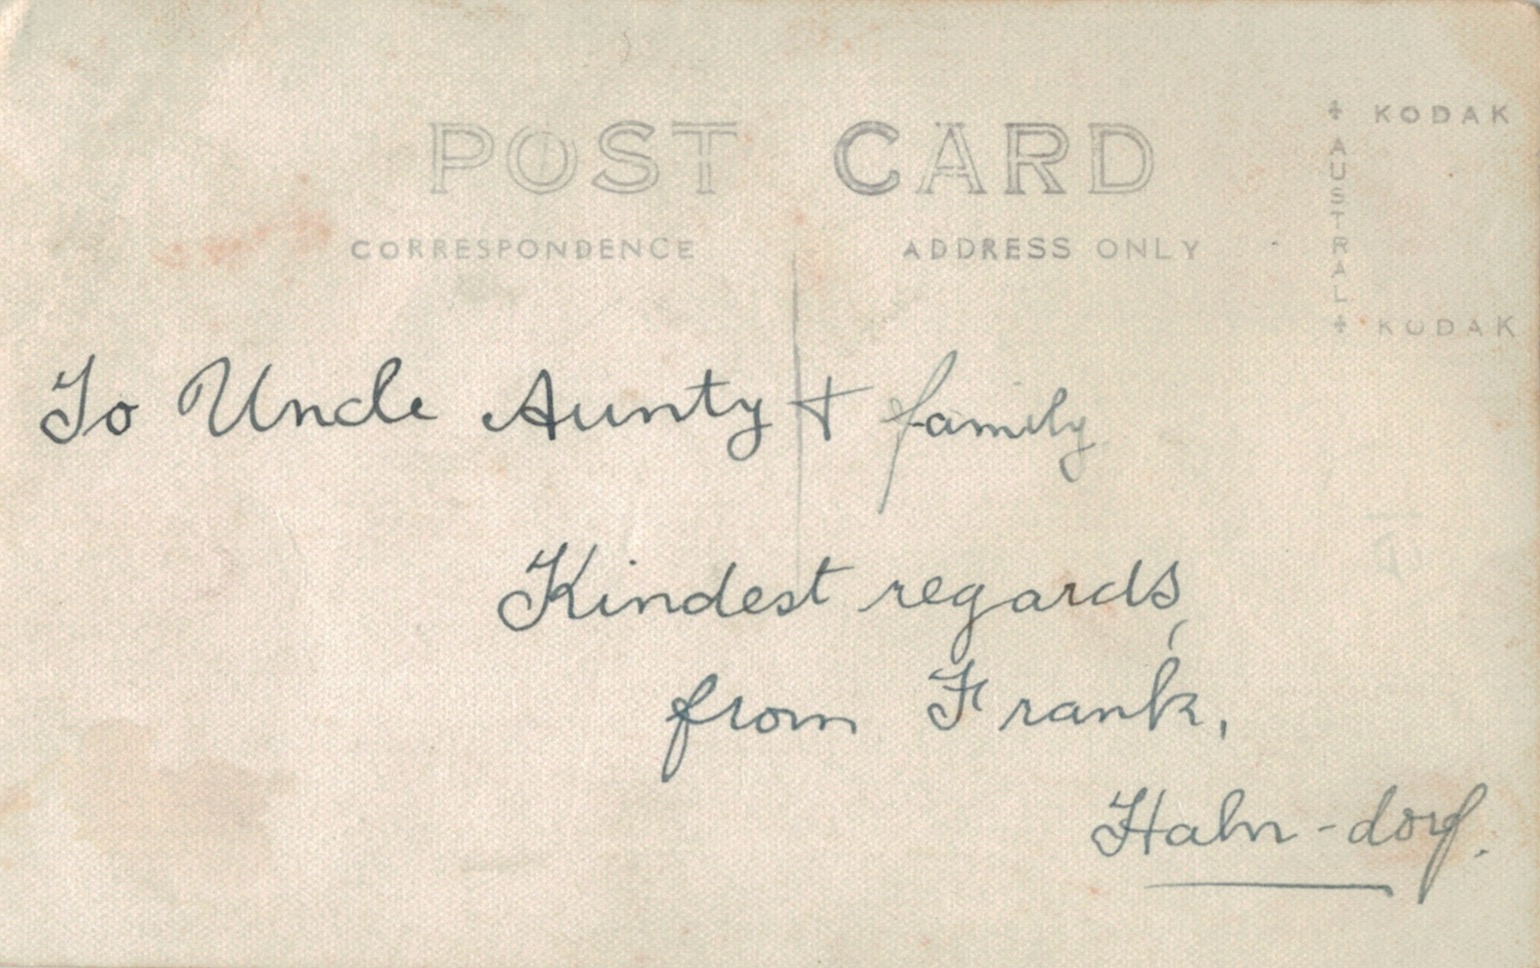 POST CARD
CORRESPONDENCE
ADDRESS ONLY
KODAK
AUSTRAL
KODAK
To Uncle Aunty + family
Kindest regards,
from Frank,
Hahn-dorf.